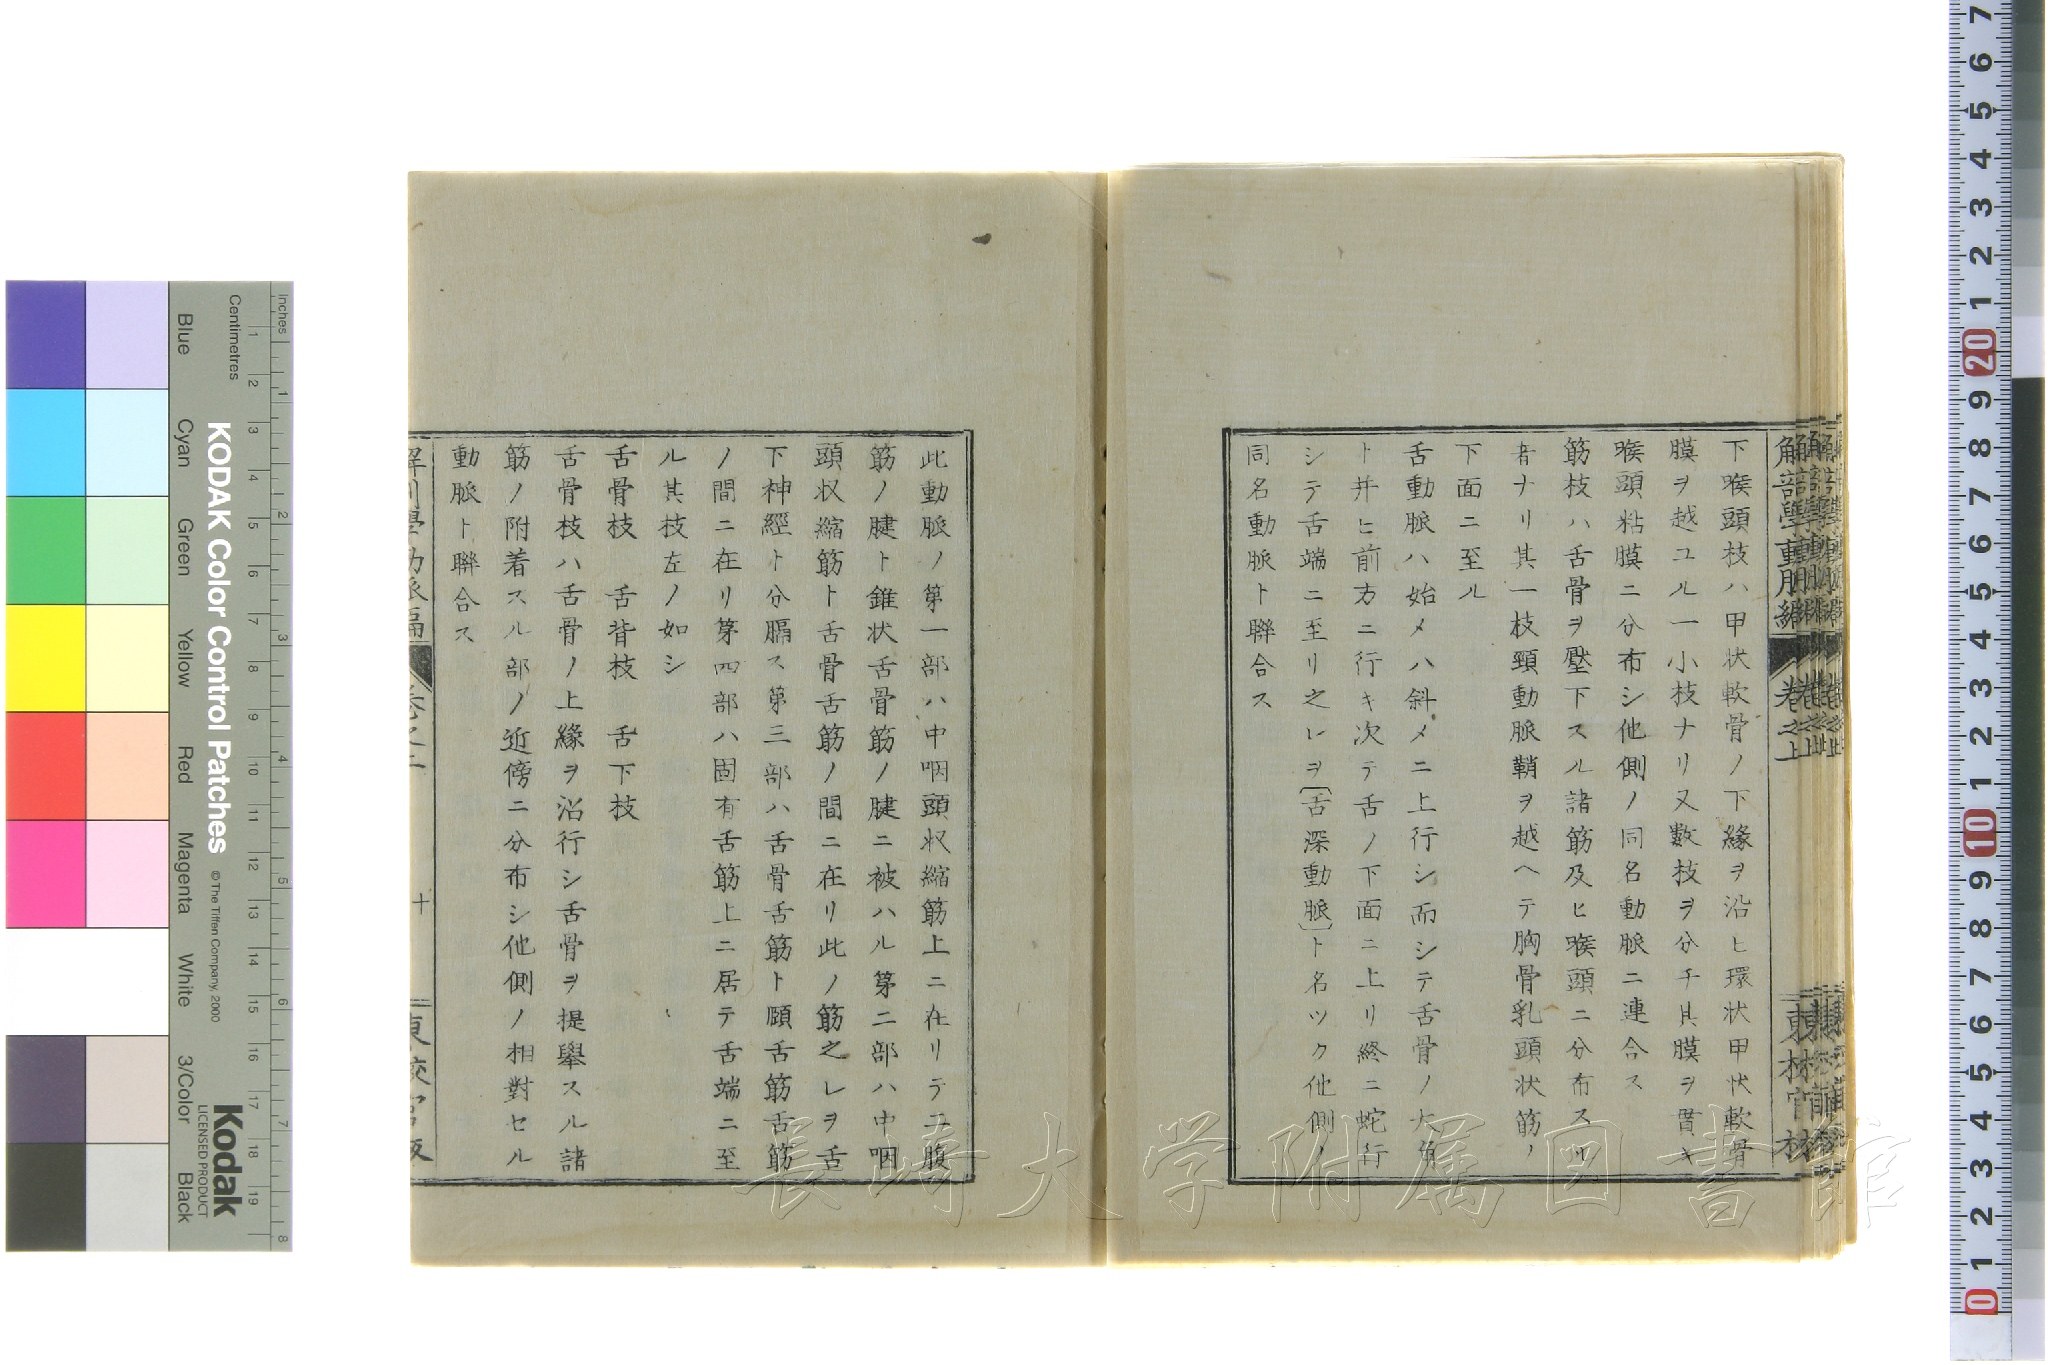 下喉頭枝ハ甲状軟骨ノ下緣ヲ沿ヒ環状甲状軟骨
膜ヲ越ユル一小枝ナリ又數枝ヲ分チ其膜ヲ貫キ
喉頭粘膜ニ分布シ他側ノ同名動脈ニ連合ス
筋枝ハ舌骨ヲ壓下スル諸筋及ヒ喉頭ニ分布スル
者ナリ其一枝頸動脈鞘ヲ越ヘテ胸骨乳頭状筋ノ
下面ニ至ル
舌動脈ハ始メハ斜メニ上行シ而シテ舌骨ノ大角
ト并ヒ前方ニ行キ次テ舌ノ下面ニ上リ終ニ蛇行
シテ舌端ニ至リ之レヲ〔舌深動脈〕ト名ツク他側ノ
同名動脈ト聯合ス
此動脈ノ第一部ハ中咽頭収縮筋上ニ在リテ二腹
筋ノ腱ト錐状舌骨筋ノ腱ニ被ハル第二部ハ中咽
頭収縮筋ト舌骨舌筋ノ間ニ在リ此ノ筋之レヲ舌
下神經ト分膈ス第三部ハ舌骨舌筋ト頤舌筋舌筋
ノ間ニ在リ第四部ハ固有舌筋上ニ居テ舌端ニ至
ル其枝左ノ如シ
舌骨枝 舌背枝 舌下枝
舌骨枝ハ舌骨ノ上緣ヲ沿行シ舌骨ヲ提擧スル諸
筋ノ附着スル部ノ近傍ニ分布シ他側ノ相對セル
動脈ト聯合ス
十
長崎大学附属図書館
KODAK Color Control Patches
© The Tiffen Company, 2000
Kodak
LICENSED PRODUCT
Inches
Centimetres
Blue
Cyan
Green
Yellow
Red
Magenta
White
3/Color
Black